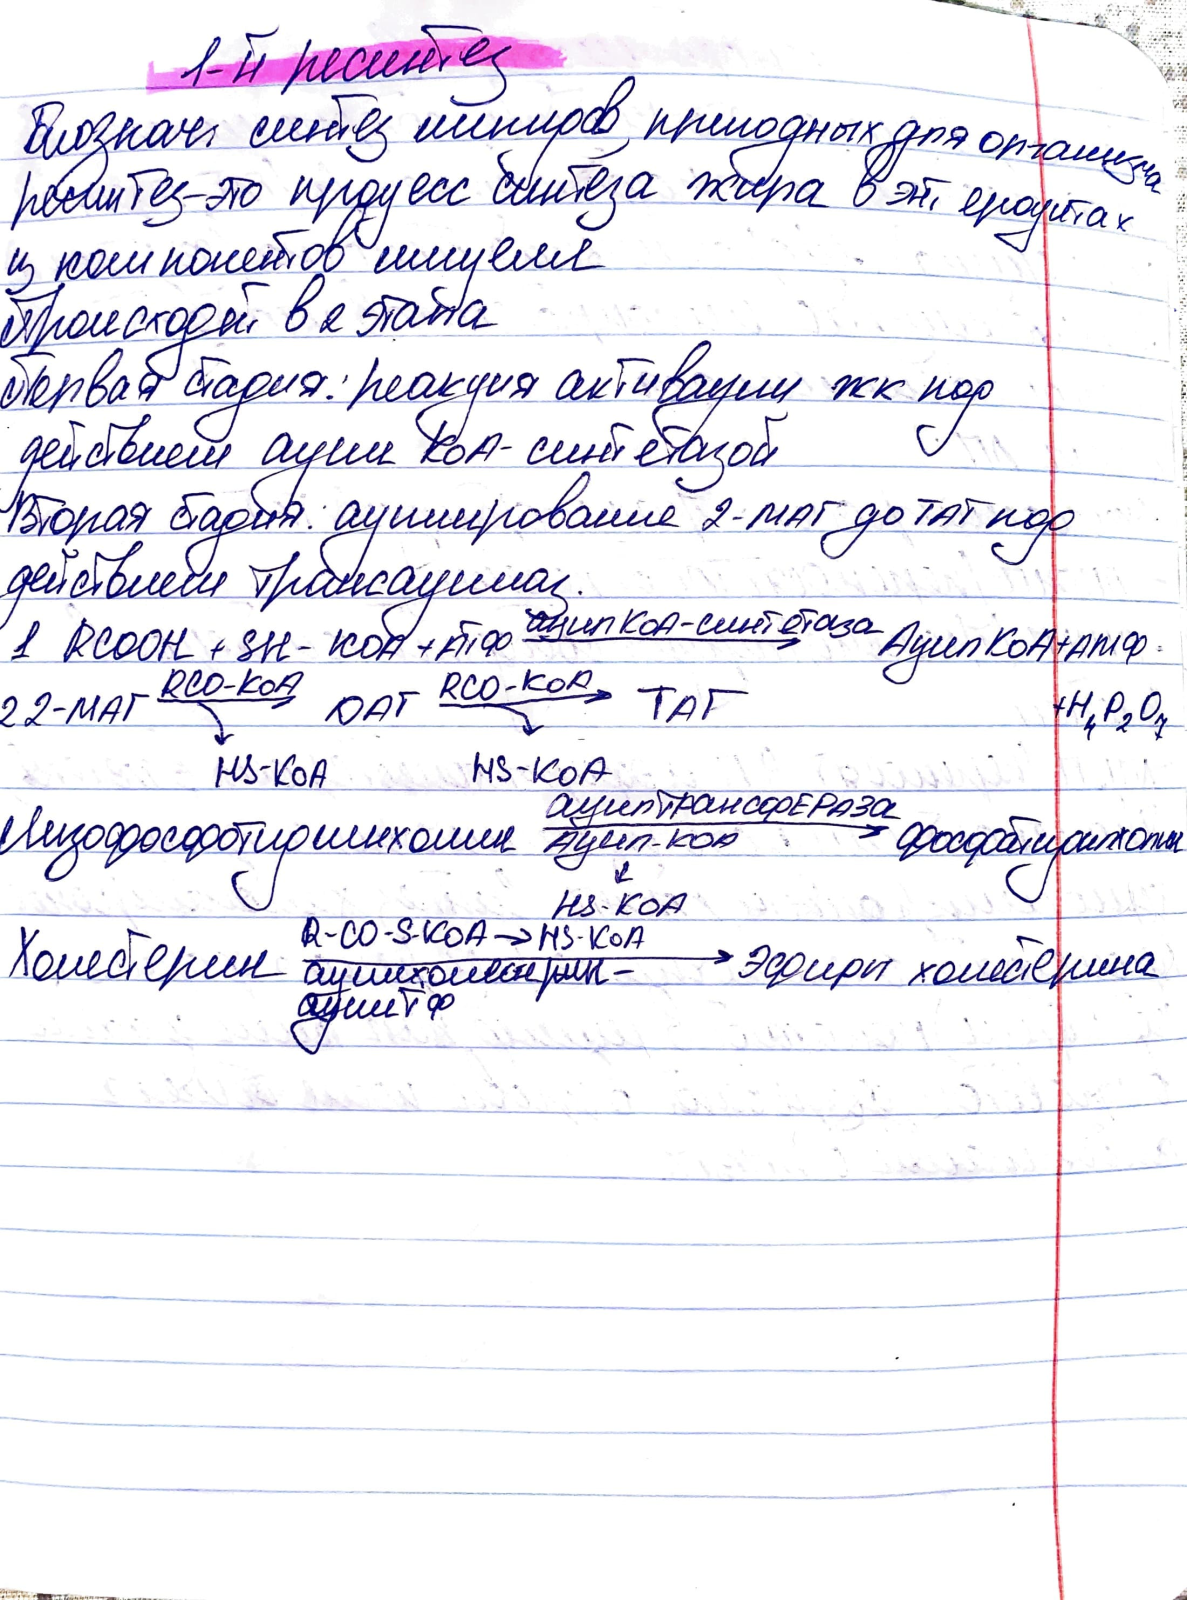 1-й ресинтез
Биознач: синтез липидов, пригодных для организма
ресинтез-это процесс синтеза жира в энт. ероцитах
из компонентов мицелл
Происходит в 2 этапа
Первая стадия: реакция активации жк под
действием ацил КоА-синтетазой
Вторая стадия: ацилирование 2-МАГ до ТАГ под
действием трансацилаз.
1 RCOOH + SH- KOA + АТФ ацилКоА-синтетаза АцилКоА+АМФ
+H4P2O7
2 2-МАГ RCO-KoA DАГ RCO-KoA ТАГ
HS-KoA HS-KoA
Лизофосфотидилхолин ацилтрансфЕРАза Ацил-КОА фосфатидилхолин
HS-KoA
Холестерин R-CO-S-KOA → HS-KoA Эфиры холестерина
ацилхолестерин-
ацилтф